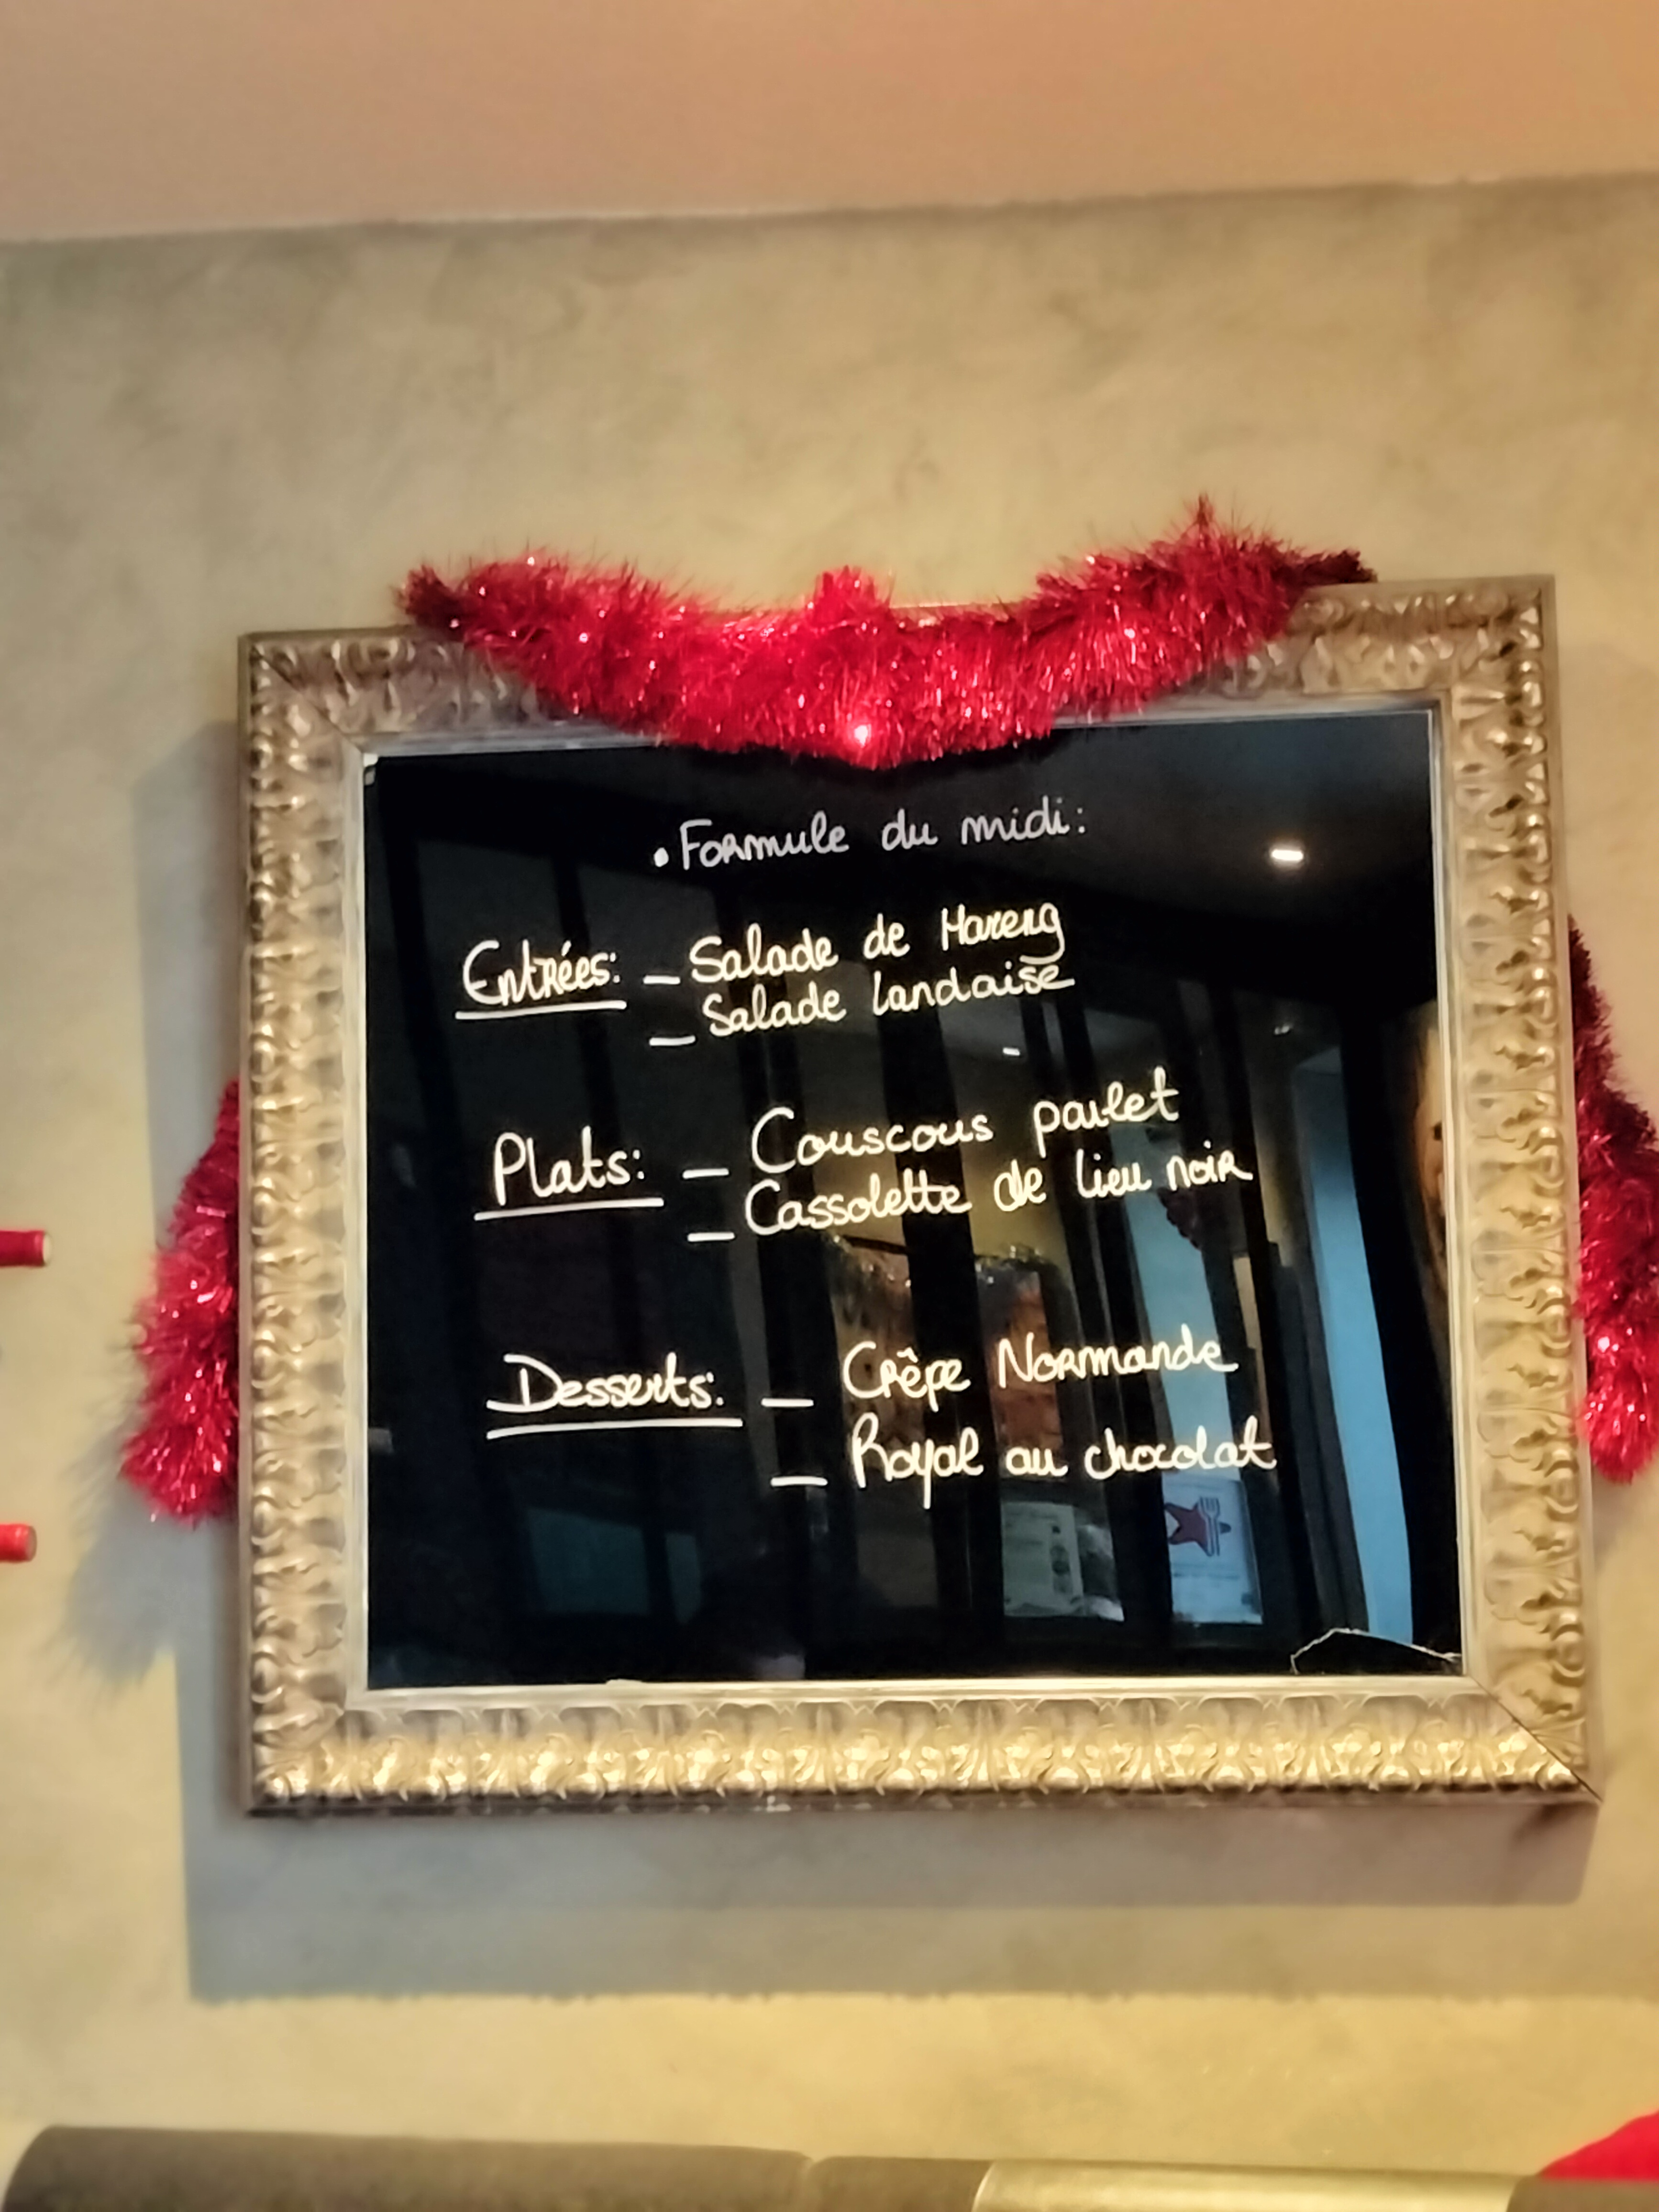 • Formule du midi:
Entrées: - Salade de Hareng
- Salade Landaise
Plats: - Couscous poulet
- Cassolette de lieu noir
Desserts: - Crêpe Normande
- Royal au chocolat